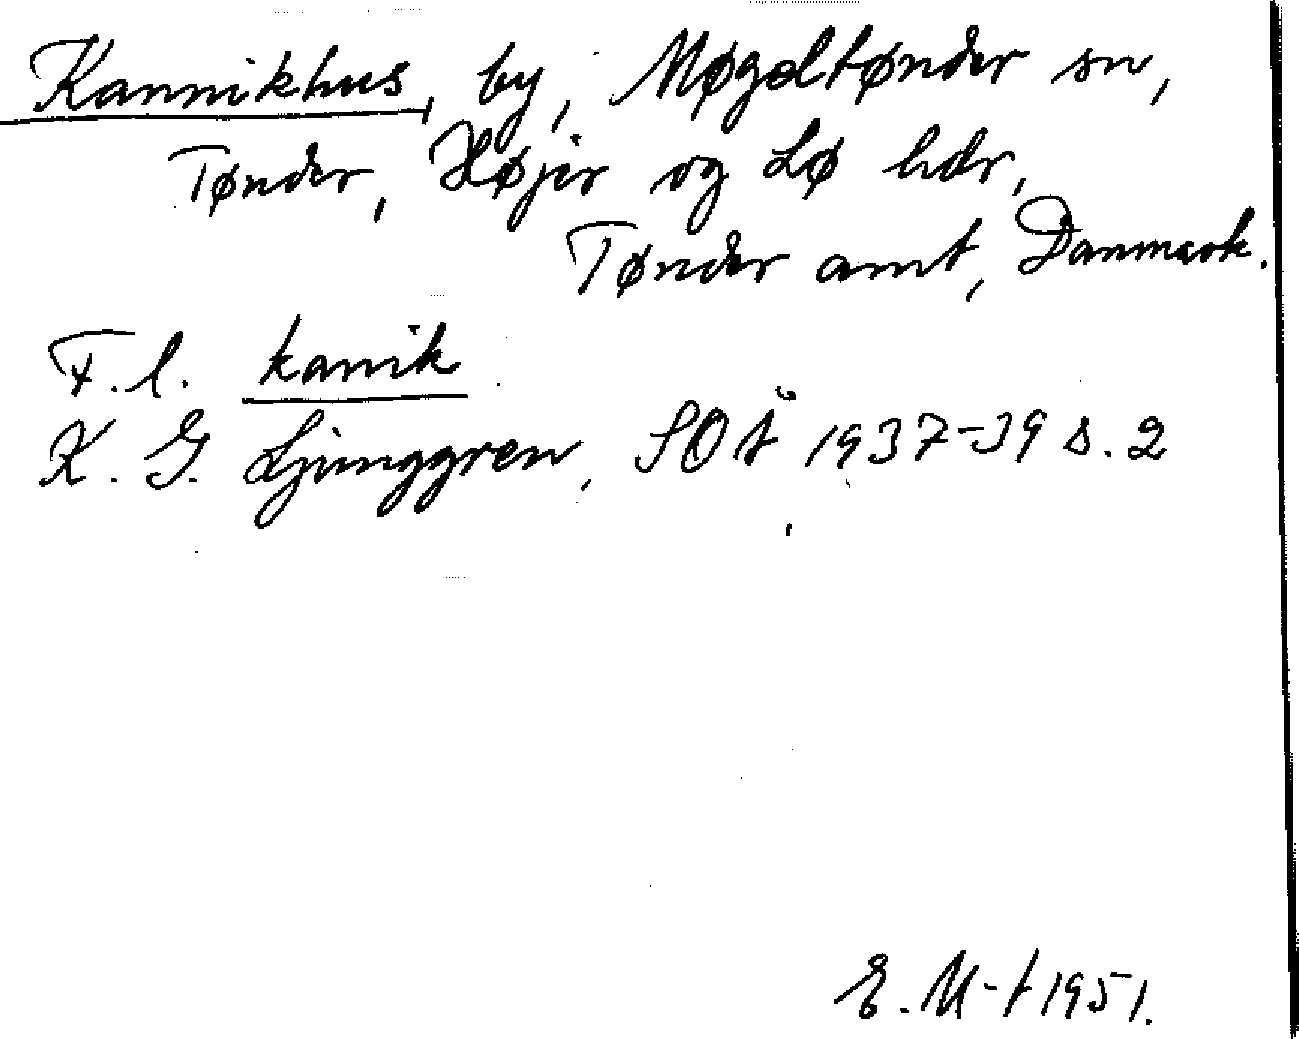 Kannikhus, by, Møgeltønder sn,
Tønder, Højer og Lø hdr,
Tønder amt, Danmark.
F.l. kanik
K. G. Ljunggren, SOÅ 1937-39 s. 2
E. M-t 1951.